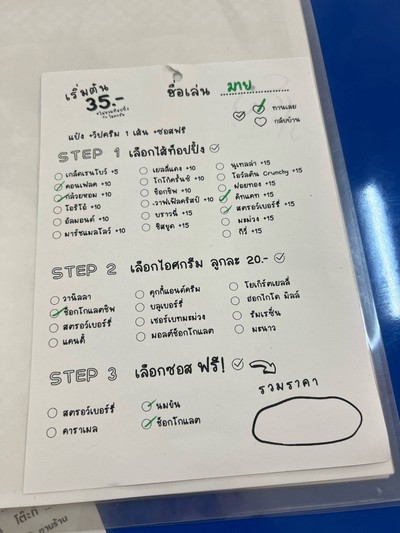 เริ่มต้น
35.-
ชื่อเล่น มายด
ทานเลย
กลับบ้าน
แป้ง +วิปครีม 1 เส้น +ซอสฟรี
STEP 1 เลือกไส้ท็อปปิ้ง
เกล็ดเรนโบว์ +5
คอนเฟลค +10
กล้วยหอม +10
โอรีโอ้ +10
อัลมอนด์ +10
มาร์ชแมลโลว์ +10
เยลลี่แดง +10
โกโก้ครั้นช์ +10
ช็อกชิพ +10
เวเฟ่ปลีครีสป์ +10
บราวนี่ +15
ชีสยูด +15
นูเทลล่า +15
โอวัลติน Crunchy +15
ฝอยทอง +15
คิทแคท +15
สตรอว์เบอร์รี่ +15
มะม่วง +15
กีวี่ +15
STEP 2 เลือกไอศกรีม ลูกละ 20.-
วานิลลา
ช็อกโกแลตชิพ
สตรอว์เบอร์รี่
แคนดี้
คุกกี้แอนด์ครีม
บลูเบอร์รี่
เชอร์เบทมะม่วง
มอลต์ช็อกโกแลต
โยเกิร์ตเยลลี่
ฮอกไกโด มิลล์
รัมเรซิ่น
มะนาว
STEP 3 เลือกซอส ฟรี!
สตรอว์เบอร์รี่
คาราเมล
นมข้น
ช็อกโกแลต
รวมราคา
โต๊ะที่
ทานร้าน